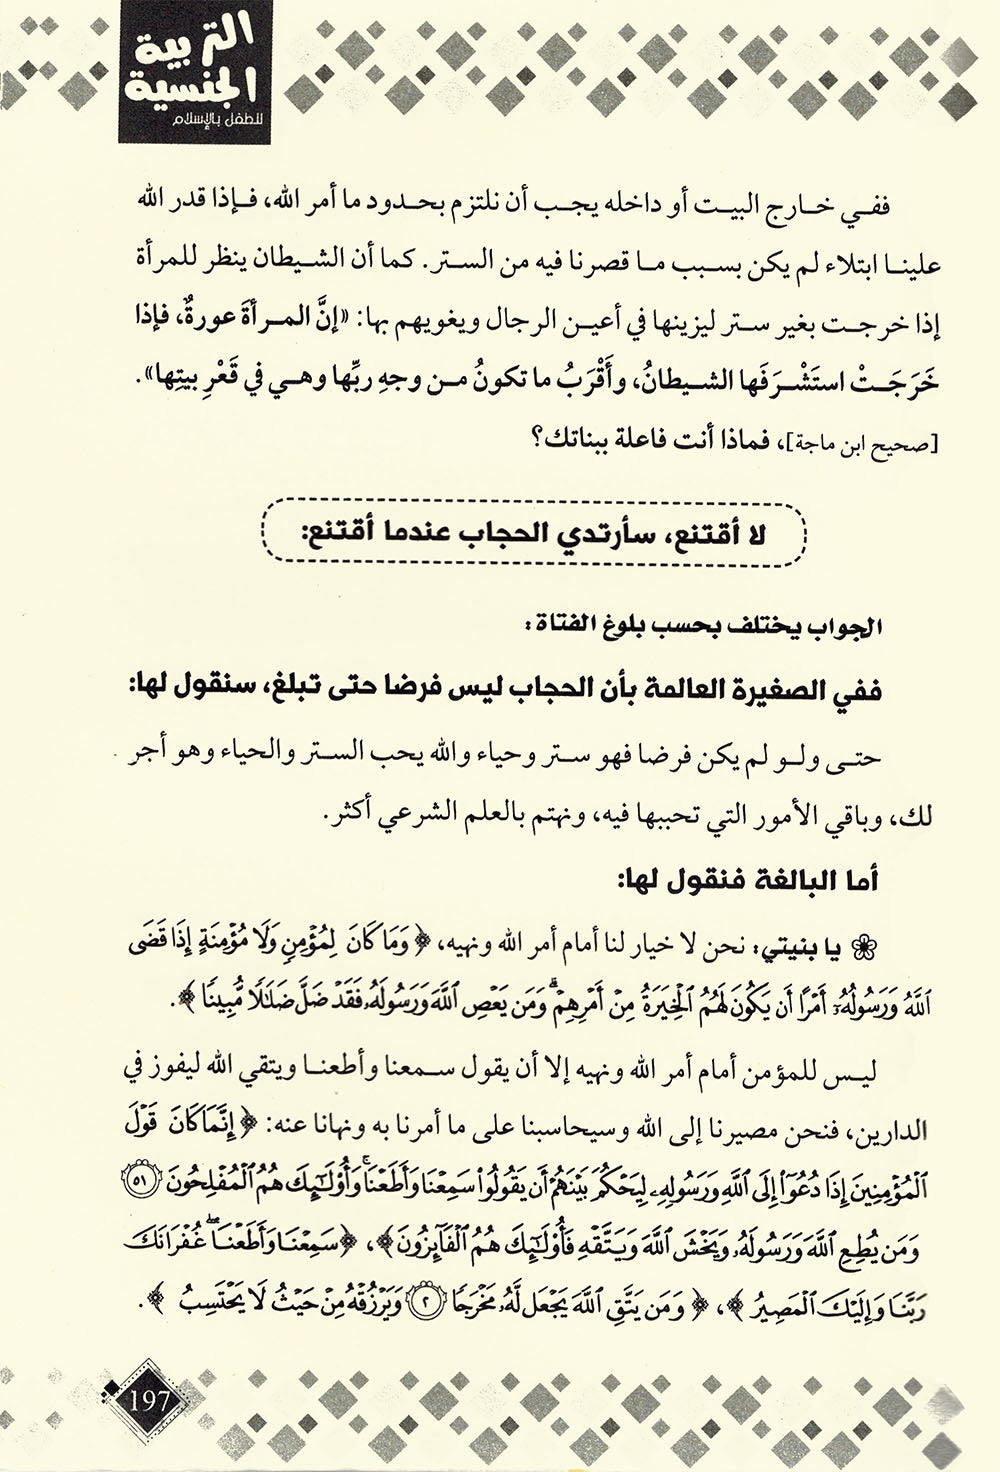 التربية
الجنسية
للطفل بالإسلام
ففي خارج البيت أو داخله يجب أن نلتزم بحدود ما أمر الله، فإذا قدر الله
علينا ابتلاء لم يكن بسبب ما قصرنا فيه من الستر. كما أن الشيطان ينظر للمرأة
إذا خرجت بغير ستر ليزينها في أعين الرجال ويغويهم بها: «إنَّ المرأةَ عورةٌ، فإذا
خَرَجَتْ استَشْرَفَها الشيطانُ، وأَقْرَبُ ما تكونُ من وجهِ ربِّها وهي في قَعْرِ بيتِها».
[صحيح ابن ماجة]، فماذا أنت فاعلة ببناتك؟
لا أقتنع، سأرتدي الحجاب عندما أقتنع:
الجواب يختلف بحسب بلوغ الفتاة:
ففي الصغيرة العالمة بأن الحجاب ليس فرضا حتى تبلغ، سنقول لها:
حتى ولو لم يكن فرضا فهو ستر وحياء والله يحب الستر والحياء وهو أجر
لك، وباقي الأمور التي تحببها فيه، ونهتم بالعلم الشرعي أكثر.
أما البالغة فنقول لها:
يا بنيتي: نحن لا خيار لنا أمام أمر الله ونهيه، ﴿ وَمَا كَانَ لِمُؤْمِنٍ وَلَا مُؤْمِنَةٍ إِذَا قَضَى
ٱللَّهُ وَرَسُولُهُۥٓ أَمْرًا أَن يَكُونَ لَهُمُ ٱلْخِيَرَةُ مِنْ أَمْرِهِمْ ۗ وَمَن يَعْصِ ٱللَّهَ وَرَسُولَهُۥ فَقَدْ ضَلَّ ضَلَٰلًا مُّبِينًا ﴾.
ليس للمؤمن أمام أمر الله ونهيه إلا أن يقول سمعنا وأطعنا ويتقي الله ليفوز في
الدارين، فنحن مصيرنا إلى الله وسيحاسبنا على ما أمرنا به ونهانا عنه: ﴿ إِنَّمَا كَانَ قَوْلَ
ٱلْمُؤْمِنِينَ إِذَا دُعُوٓا۟ إِلَى ٱللَّهِ وَرَسُولِهِۦ لِيَحْكُمَ بَيْنَهُمْ أَن يَقُولُوا۟ سَمِعْنَا وَأَطَعْنَا ۚ وَأُو۟لَٰٓئِكَ هُمُ ٱلْمُفْلِحُونَ ٥١
وَمَن يُطِعِ ٱللَّهَ وَرَسُولَهُۥ وَيَخْشَ ٱللَّهَ وَيَتَّقْهِ فَأُو۟لَٰٓئِكَ هُمُ ٱلْفَآئِزُونَ ﴾، ﴿ سَمِعْنَا وَأَطَعْنَا ۖ غُفْرَانَكَ
رَبَّنَا وَإِلَيْكَ ٱلْمَصِيرُ ﴾، ﴿ وَمَن يَتَّقِ ٱللَّهَ يَجْعَل لَّهُۥ مَخْرَجًا ٢ وَيَرْزُقْهُ مِنْ حَيْثُ لَا يَحْتَسِبُ ﴾.
197